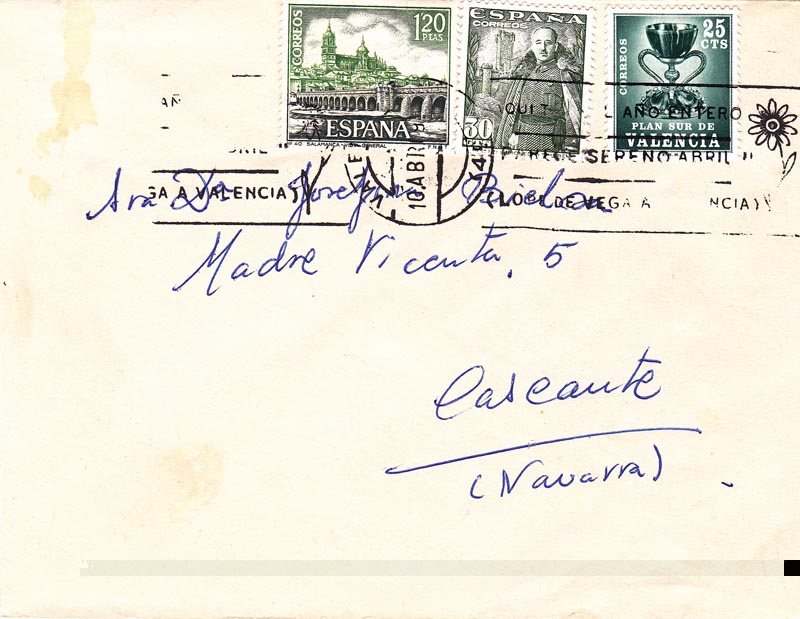 CORREOS
1'20
PTAS
ESPAÑA
SALAMANCA VISTA GENERAL
ESPAÑA
CORREOS
30
CORREOS
25
CTS
PLAN SUR DE
VALENCIA
AÑO ENTERO
10 ABR
SERENO ABRIL
GA A VALENCIA)
(LOPE DE VEGA A NCIA)
Sra Dª Josefina
Madre Vicenta, 5
Cascante
(Navarra)